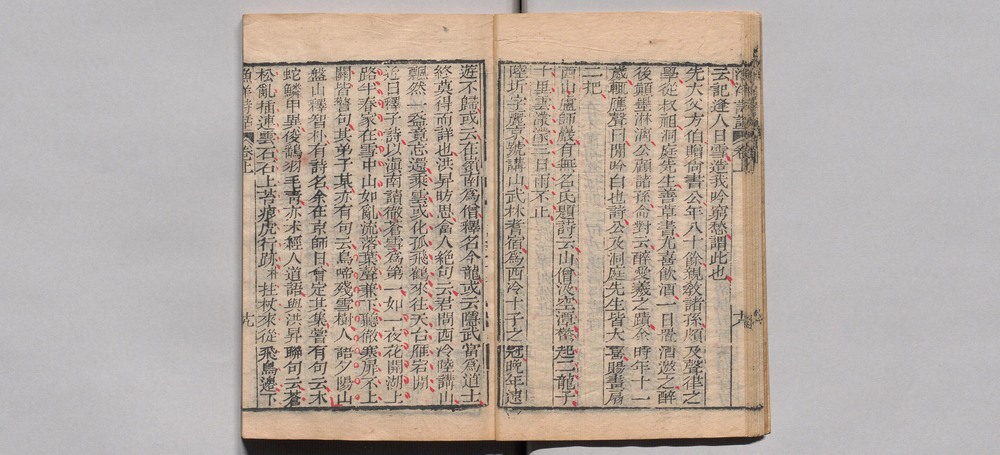 漁洋詩話 卷上
云記逢人日雪造我吟窮愁謂此也
先大父方伯贈尚書公年八十餘親教諸孫頗及聲律之
學從叔祖洞庭先生善草書尤喜飲酒一日置酒邀之醉
後顛墨淋漓公顧諸孫命對云醉愛羲之蹟余時年十一
歲輒應聲曰閒吟白也詩公及洞庭先生皆大喜賜畫扇
二把
西山盧師巖有無名氏題詩云山僧汲空潭驚起二龍子
千里雲濛濛三日雨不止
陸圻字麗京號講山武林耆宿為西泠十子之冠晚年遠
遊不歸或云在嶺南為僧釋名今龍或云隱武當為道士
終莫得而詳也洪昇昉思人絕句云君問西泠陸講山
飄然一盋竟忘還乘雲或化孤飛鶴來往天台雁宕間
近日釋子詩以滇南讀徹蒼雪為第一如一夜花開湖上
路半春家在雪中山如亂流落葉聲兼下聽徹寒扉不上
關皆警句其弟子某亦有句云鳥啼殘雪樹人語夕陽山
盤山釋智朴有詩名余在京師日曾定其集嘗有句云木
蛇鱗甲異後鶴羽毛靑亦未經人道語與洪昇聯句云蒼
松亂插連雲石石上苔痕虎行跡朴拄杖來從飛鳥邊下
漁洋詩話 卷上